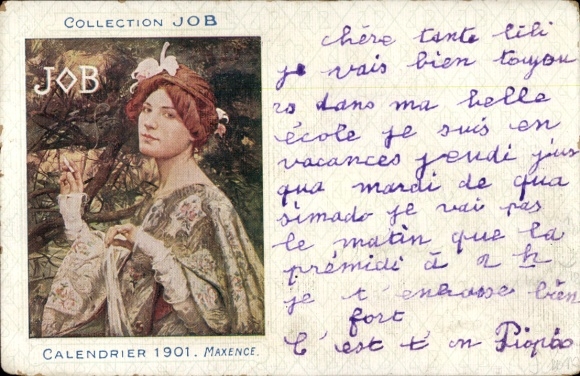 COLLECTION JOB
JOB
CALENDRIER 1901. MAXENCE.
chère tante lili
je vais bien toujou
rs dans ma belle
école je suis en
vacances jeudi jus
qua mardi de qua
simado je vai pas
le matin que la
prémidi à 2 h
je t'enrasse bien
fort
C'est t'on Piopio